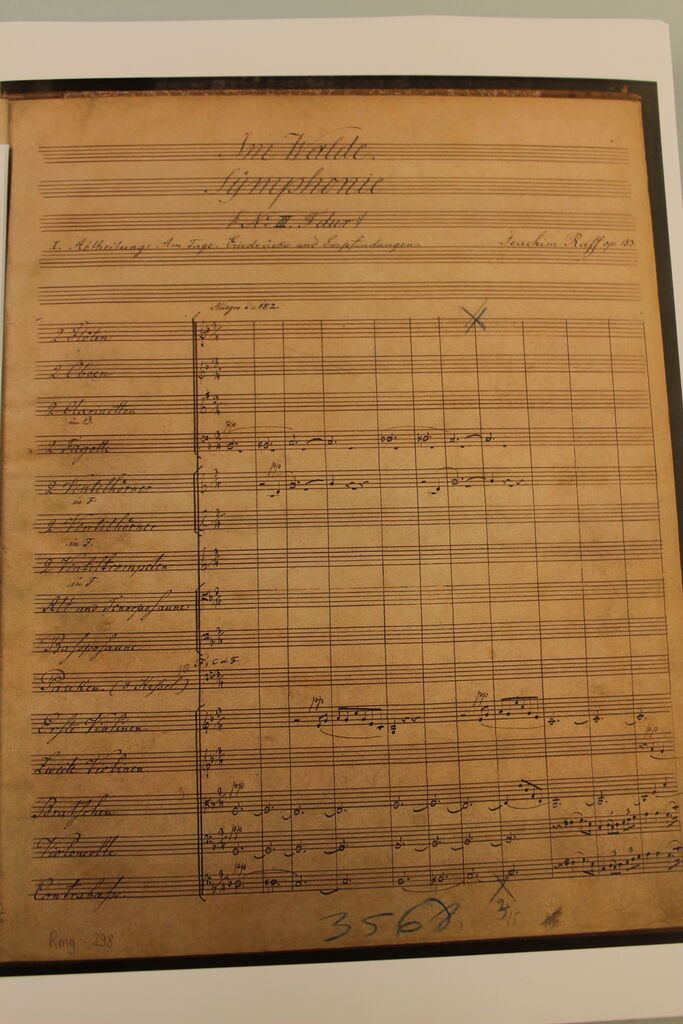 Im Walde.
Symphonie
(No. III. F dur)
I. Abtheilung: Am Tage. Eindrücke und Empfindungen.
Joachim Raff op. 153
Allegro = 152.
2 Flöten
2 Oboen
2 Clarinetten
in B.
pp
2 Fagotte
pp
2 Ventilhörner
in F.
2 Ventilhörner
in F.
2 Ventiltrompeten
in F
Alt und Tenorposaune
Bassposaune
F, C
Pauken. (3 Kessel)
pp pp
Erste Violinen
pp
Zweite Violinen.
pp
Bratschen
pp
Violoncelle
pp
Contrabässe.
3568.
Rmg 298